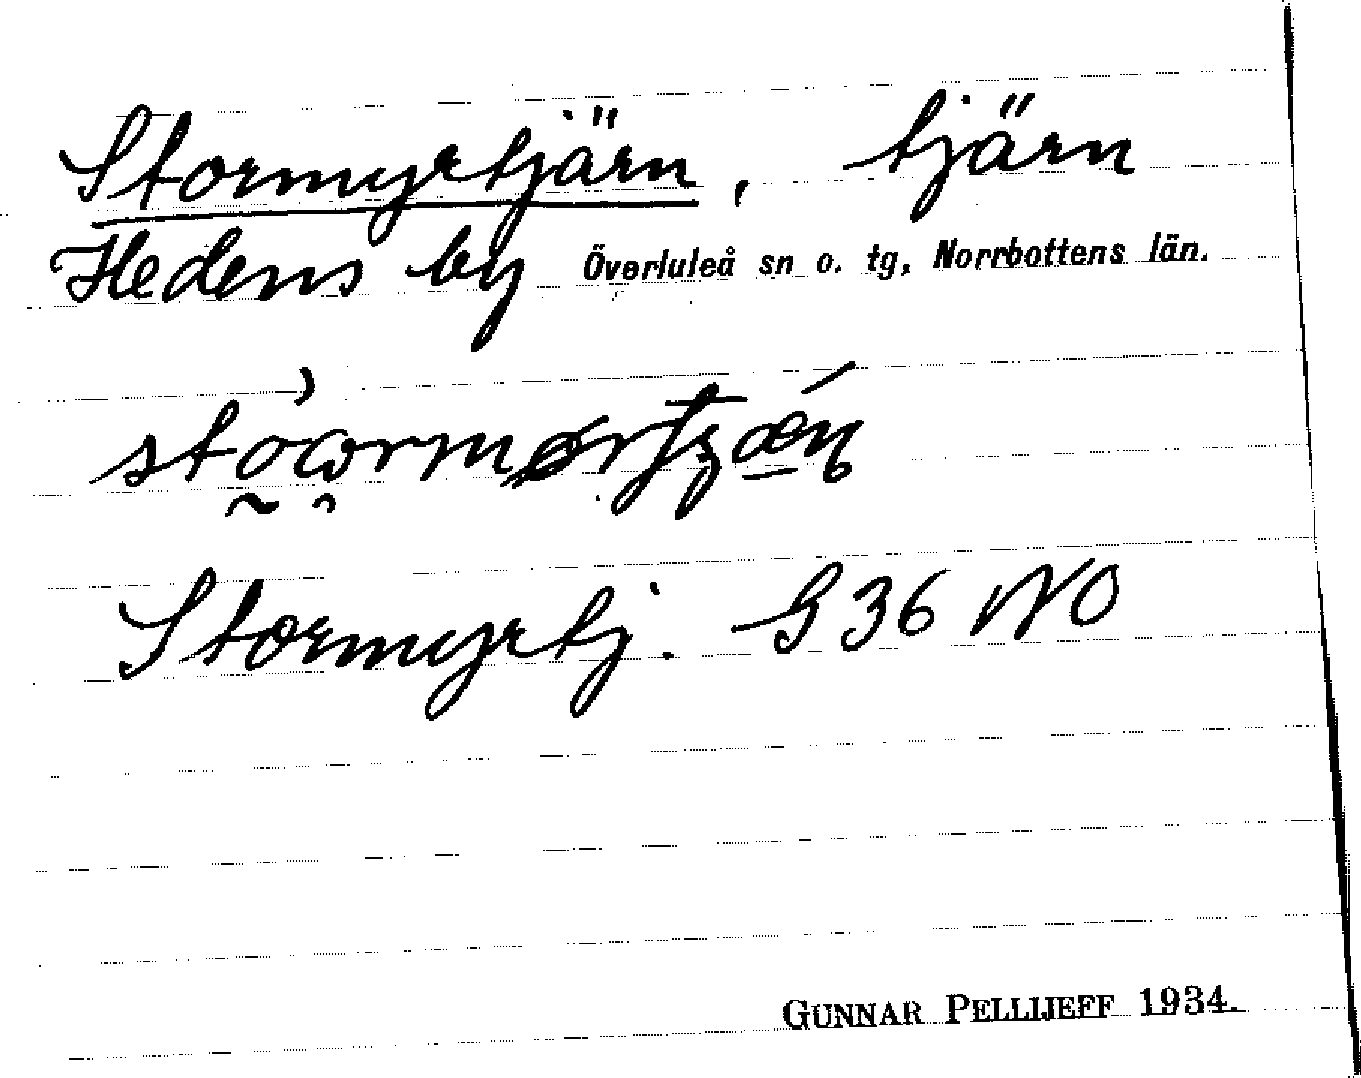 Stormyrtjärn, tjärn
Hedens by Överluleå sn o. tg, Norrbottens län.
Stormyrtj. G 36 NO
GUNNAR PELLIJEFF 1934.